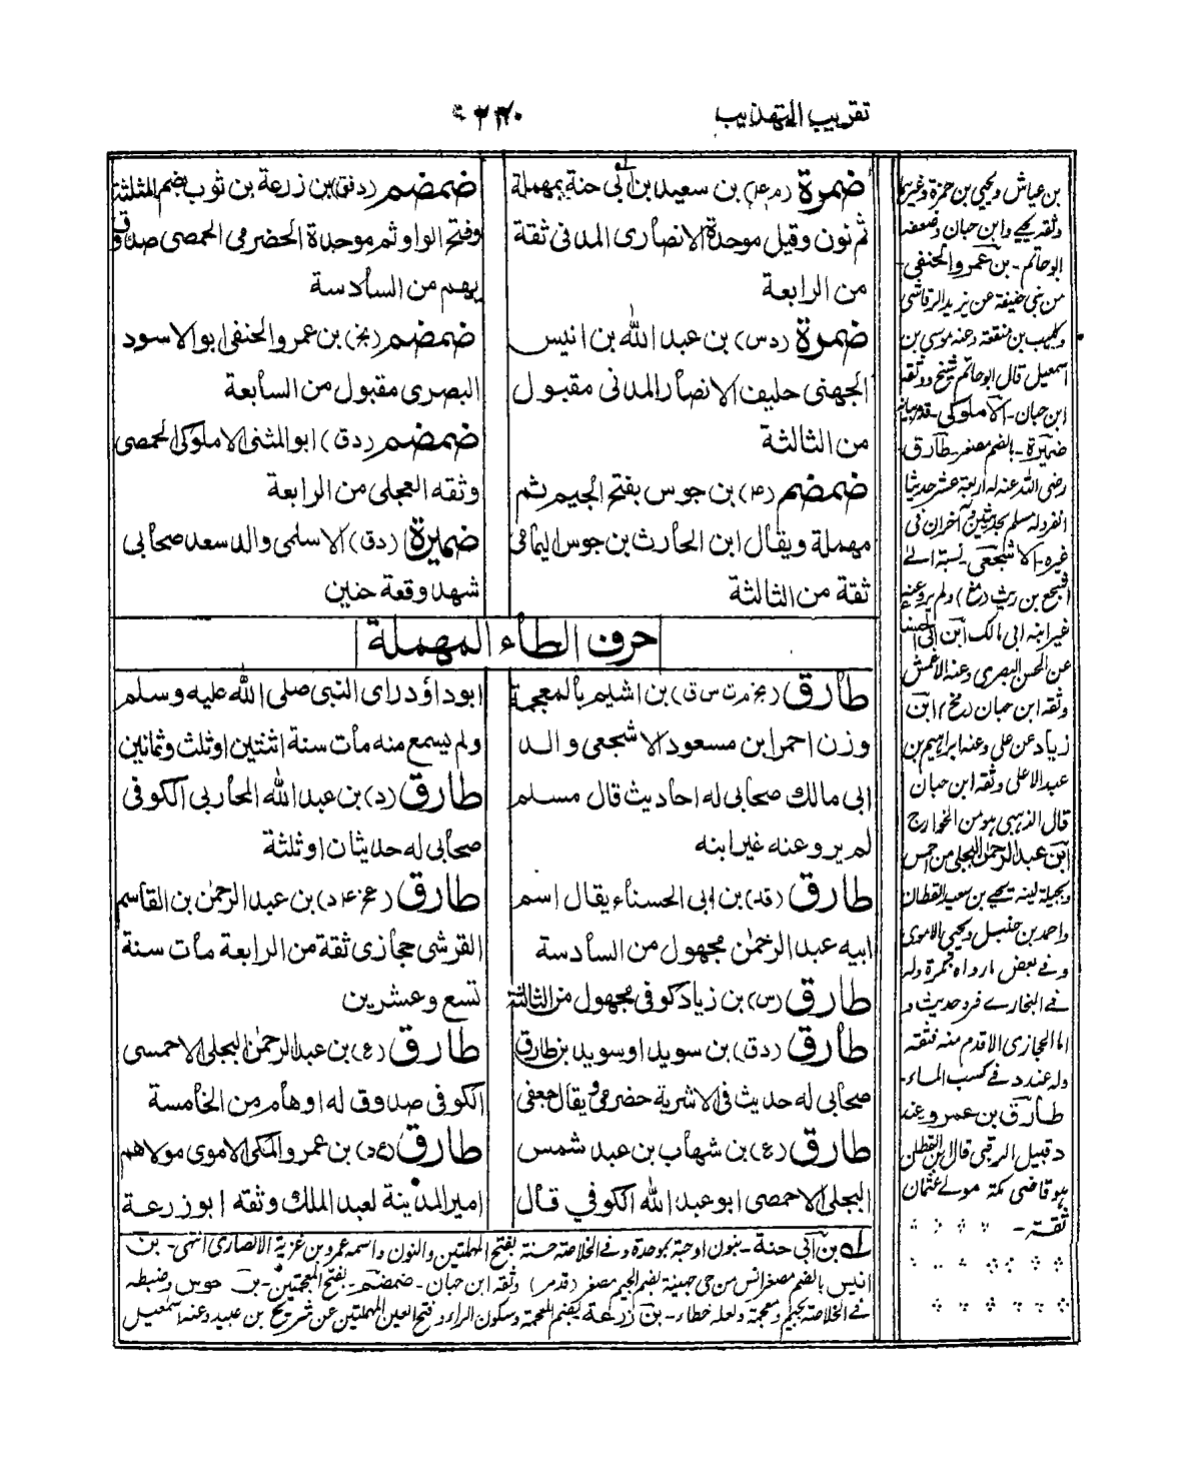 تقريب التهذيب
٢٣٠
ضمرة (م عه) بن سعيد بن أبى حنة بمهملة
ثم نون وقيل موحدة الانصارى المدنى ثقة
من الرابعة
ضمرة (د س) بن عبد الله بن انيس
الجهنى حليف الانصار المدنى مقبول
من الثالثة
ضمضم (عه) بن جوس بفتح الجيم ثم
مهملة ويقال ابن الحارث بن جوس اليمامى
ثقة من الثالثة
ضمضم (د فق) بن زرعة بن ثوب بضم المثلثة
وفتح الواو ثم موحدة الحضرمى الحمصى صدوق
يهم من السادسة
ضمضم (بخ) بن عمرو الحنفى ابو الاسود
البصرى مقبول من السابعة
ضمضم (د ق) ابو المثنى الاملوكى الحمصى
وثقه العجلى من الرابعة
ضميرة (د ق) الاسلمى والد سعد صحابى
شهد وقعة حنين
حرف الطاء المهملة
طارق (بخ م ت س ق) بن اشيم بالمعجمة
وزن احمر ابن مسعود الاشجعى والد
ابى مالك صحابى له احاديث قال مسلم
لم يرو عنه غير ابنه
طارق (قد) بن ابى الحسناء يقال اسم
ابيه عبد الرحمٰن مجهول من السادسة
طارق (س) بن زياد كوفى مجهول من الثالثة
طارق (د ق) بن سويد او سويد بن طارق
صحابى له حديث فى الاشربة حضرمى ويقال جعفى
طارق (ع) بن شهاب بن عبد شمس
البجلى الاحمصى ابو عبد الله الكوفي قال
ابو داؤد راى النبى صلى الله عليه وسلم
ولم يسمع منه مات سنة اثنتين او ثلث وثمانين
طارق (د) بن عبد الله المحاربى الكوفى
صحابى له حديثان او ثلثة
طارق (عخ عه د) بن عبد الرحمٰن بن القاسم
القرشى حجازى ثقة من الرابعة مات سنة
تسع وعشرين
طارق (ع) بن عبد الرحمٰن البجلى الاحمسى
الكوفى صدوق له اوهام من الخامسة
طارق (عد) بن عمرو المكى الاموى مولاهم
امير المدينة لعبد الملك وثقه ابو زرعة
له بن أبى حنة - بنون او حبة بموحدة وفى الخلاصة حسنة بفتح المهملتين والنون واسمه عمرو بن غزية الانصارى انتهى - بن
انيس بالضم مصغر انس من حى جهينة بضم الجيم مصغر (قدس) وثقه ابن حبان - ضمضم - بفتح المعجمتين - بن جوس وضبطه
فى الخلاصة بجيم ومعجمة ولعله خطاء - بن زرعة بضم المعجمة وسكون الراء وفتح العين المهملتين عن شريح بن عبيد وعنه اسمٰعيل
بن عياش ويحيى بن حمزة وغيرها
وثقه يحيى وابن حبان وضعفه
ابو حاتم - بن عمرو الحنفى -
من بنى حنيفة عن يزيد الرقاشى
وكليب بن منفعة وعنه موسى بن
اسمعيل قال ابو حاتم شيخ ووثقه
ابن حبان - الاملوكى - قد
ضميرة - بالضم مصغر - طارق -
رضى الله عنه له اربعة عشر حديثا
انفرد له مسلم بحديثين آخران فى
غيره - الاشجعى - نسبة الى
اشجع بن ريث (مغ) ولم يرو عنه
غير ابنه ابى مالك ابن ابى الحسناء
عن الحسن البصرى وعنه الاعمش
وثقه ابن حبان ابن
زياد عن على وعنه ابراهيم بن
عبد الاعلى وثقه ابن حبان
قال الذهبى هو من الخوارج
ابن عبد الرحمن البجلى من احمس
وبجيلة لينه يحيى بن سعيد القطان
واحمد بن حنبل ويحيى الاموى
وفى بعض مارواه وله
فى البخارى فرد حديث و
اما الحجازى الاقدم منه فثقة
وله عند د فى كسب الماء -
طارق بن عمرو عنه
د قبيل الرقبى قال ابن القطان
هو قاضى مكة مولى عثمان
ثقة -